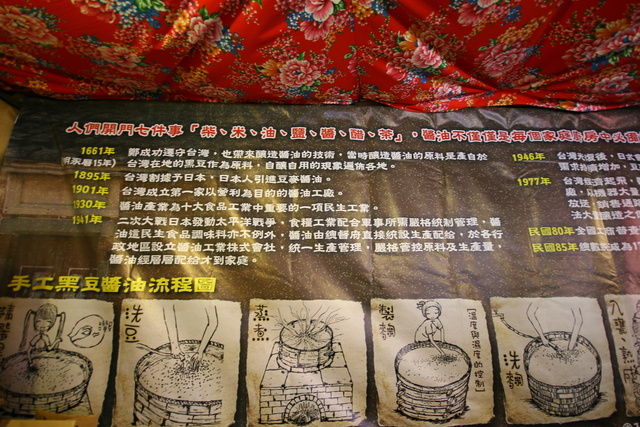 人們開門七件事「柴、米、油、鹽、醬、醋、茶」,醬油不僅僅是每個家庭廚房中必備
1661年 鄭成功遷守台灣,也帶來釀造醬油的技術,當時釀造醬油的原料是產自於
(明永曆15年) 台灣在地的黑豆作為原料,自釀自用的現象遍佈各地。
1895年 台灣割據予日本,日本人引進豆麥醬油。
1901年 台灣成立第一家以營利為目的的醬油工廠。
1930年 醬油產業為十大食品工業中重要的一項民生工業。
1941年 二次大戰日本發動太平洋戰爭,食糧工業配合軍事所需嚴格統制管理,醬
油這民生食品調味料亦不例外,醬油由總督府直接統設生產配給,於各行
政地區設立醬油工業株式會社,統一生產管理,嚴格管控原料及生產量,
醬油經層層配給才到家庭。
1946年 台灣光復後,日
1977年 台灣
放送,銷售通路
民國80年 全國工商普查
民國85年
手工黑豆醬油流程圖
洗豆
蒸煮
製麴
【溫度與濕度的控制】
洗麴